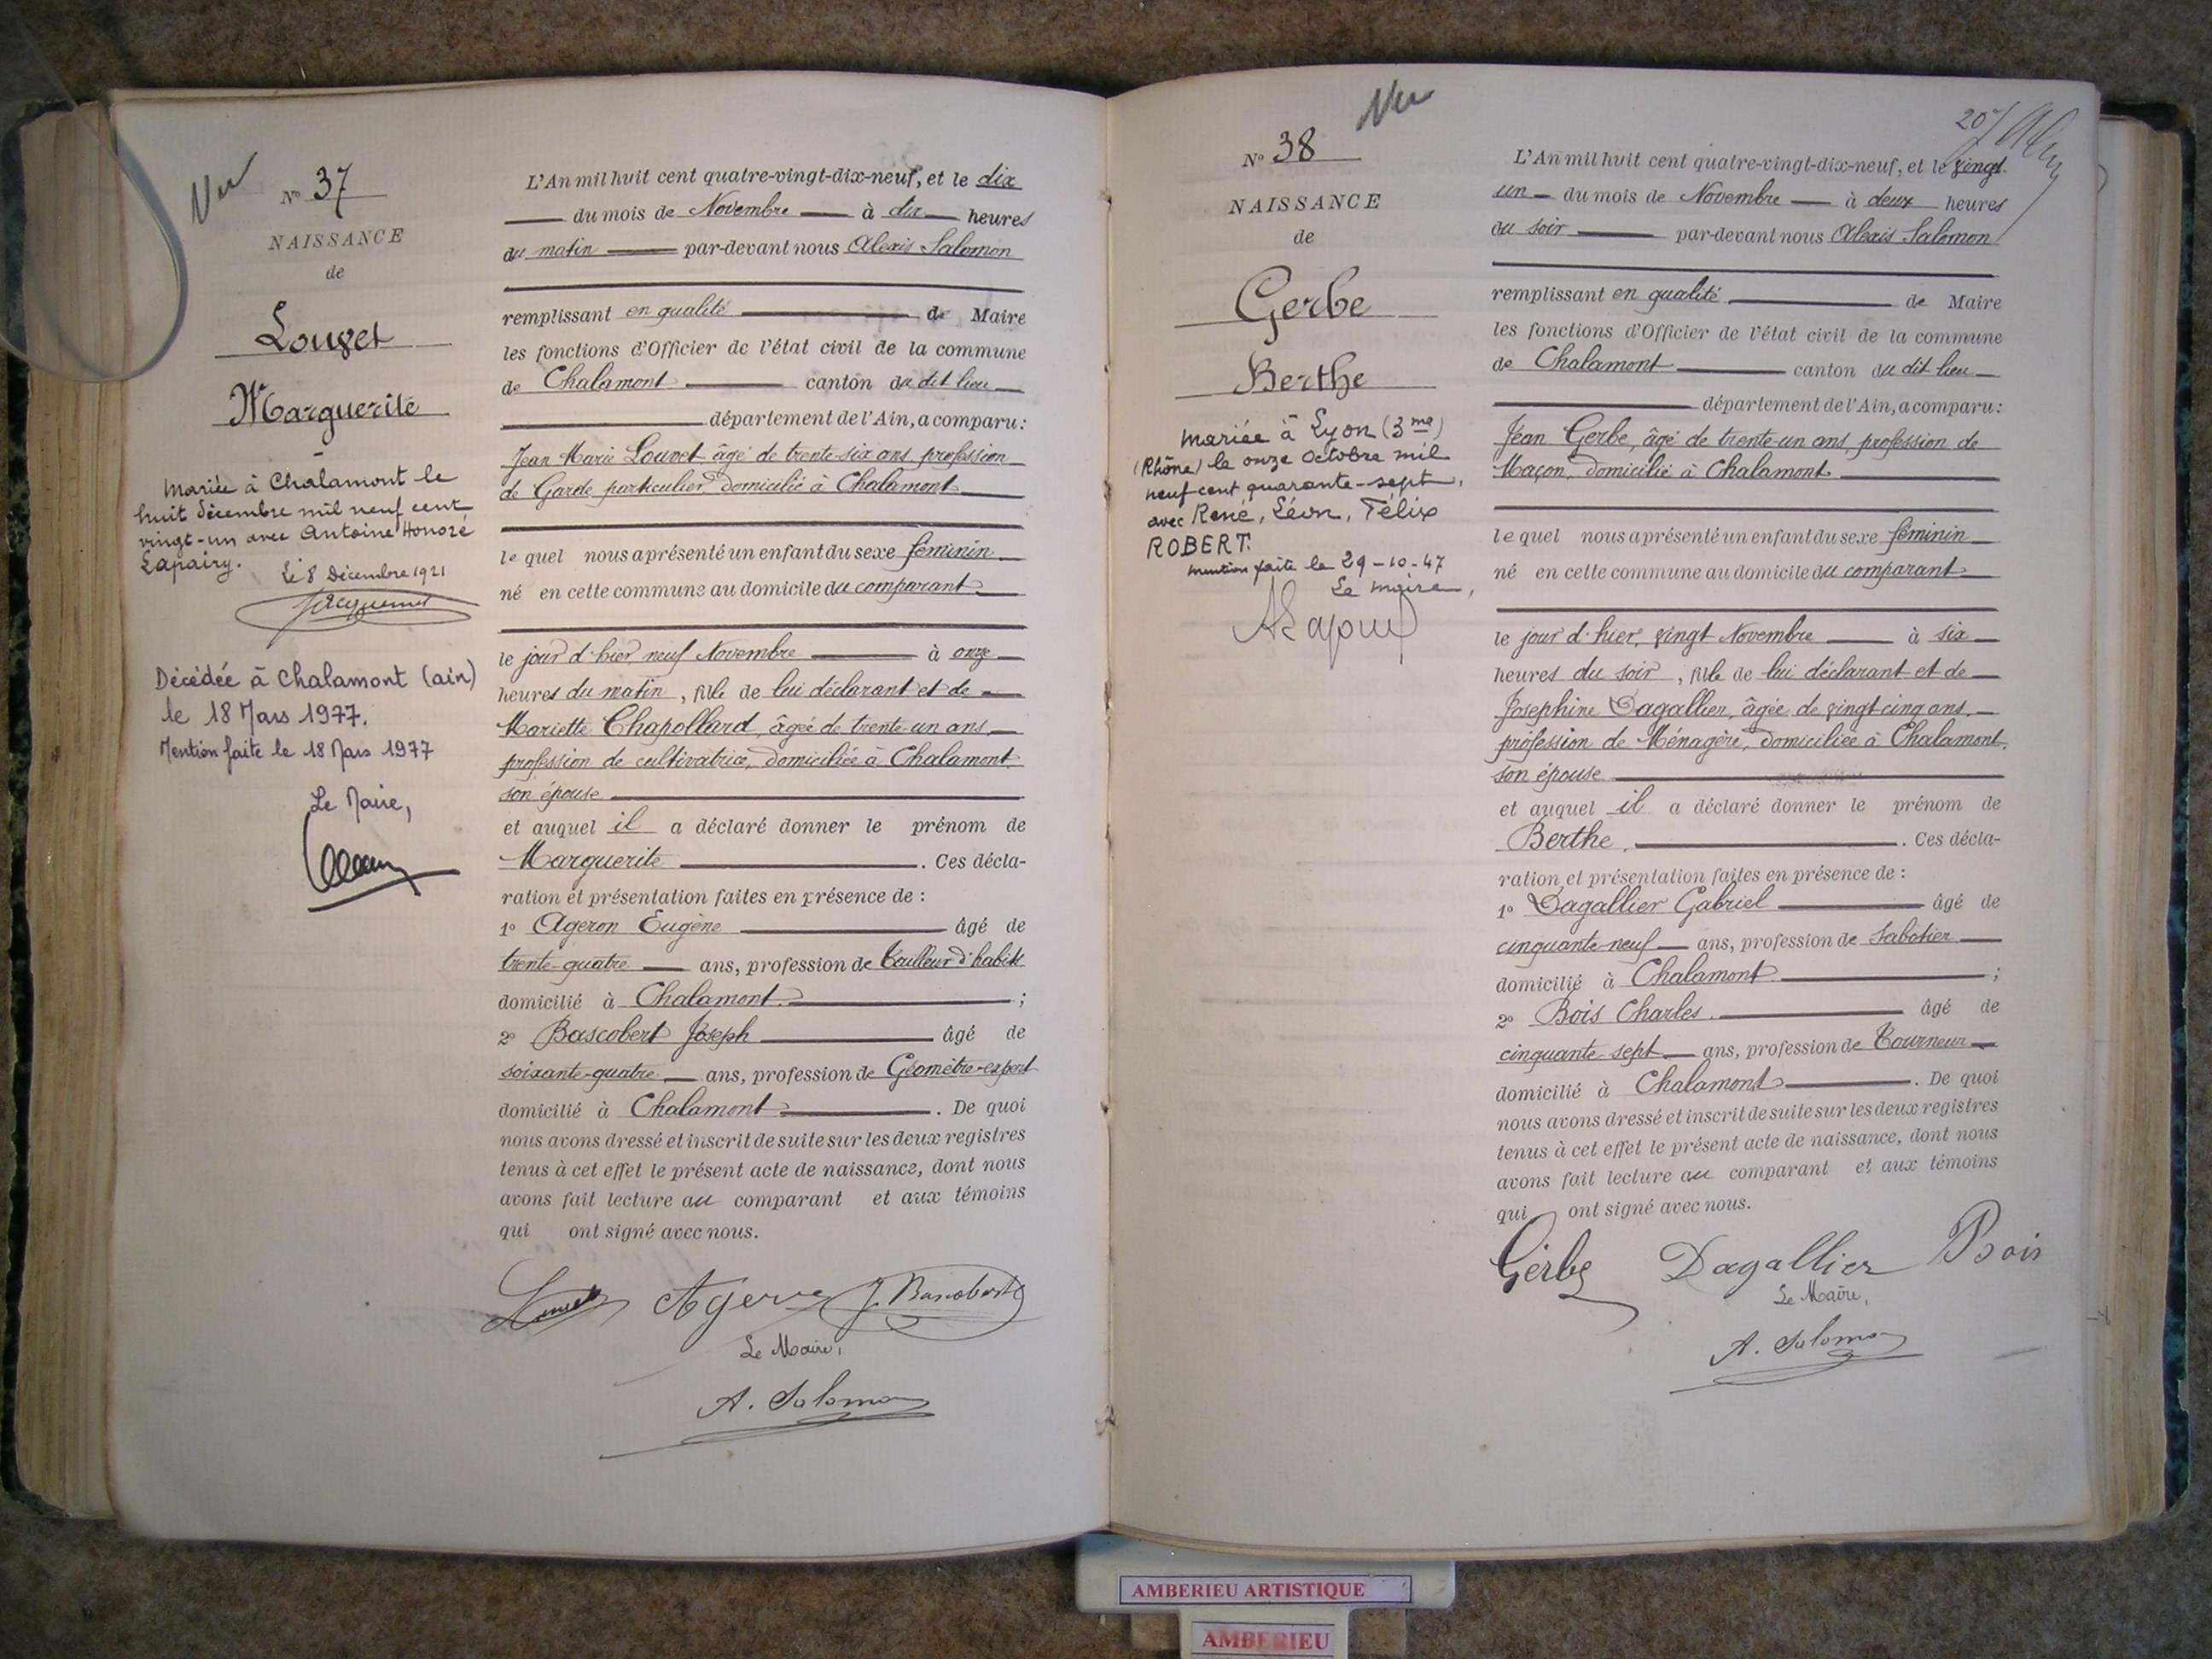 Vu
N° 37
NAISSANCE
de
Louvet
Marguerite
Mariée à Chalamont le
huit décembre mil neuf cent
vingt-un avec Antoine Honoré
Lapairy.
Le 8 Décembre 1921
Décédée à Chalamont (ain)
le 18 Mars 1977.
Mention faite le 18 Mars 1977
Le Maire,
L'An mil huit cent quatre-vingt-dix-neuf, et le dix
du mois de Novembre à dix heures
du matin par-devant nous Alexis Salomon
remplissant en qualité de Maire
les fonctions d'Officier de l'état civil de la commune
de Chalamont canton du dit lieu
département de l'Ain, a comparu:
Jean Marie Louvet âgé de trente-six ans profession
de Garde particulier, domicilié à Chalamont
le quel nous a présenté un enfant du sexe féminin
né en cette commune au domicile du comparant
le jour d'hier neuf Novembre à onze
heures du matin, fille de lui déclarant et de
Mariette Chapollard, âgée de trente-un ans,
profession de cultivatrice, domiciliée à Chalamont
son épouse
et auquel il a déclaré donner le prénom de
Marguerite. Ces décla-
ration et présentation faites en présence de :
1° Ageron Eugène âgé de
trente-quatre ans, profession de Tailleur d'habits
domicilié à Chalamont. ;
2° Bascobert Joseph âgé de
soixante-quatre ans, profession de Géomètre-expert
domicilié à Chalamont. De quoi
nous avons dressé et inscrit de suite sur les deux registres
tenus à cet effet le présent acte de naissance, dont nous
avons fait lecture au comparant et aux témoins
qui ont signé avec nous.
Louvet Ageron J. Bascobert
Le Maire,
A. Salomon
Vu
N° 38
NAISSANCE
de
Gerbe
Berthe
Mariée à Lyon (3me)
(Rhône) le onze Octobre mil
neuf cent quarante-sept,
avec René, Léon, Félix
ROBERT.
Mention faite le 29-10-47
Le maire,
20
L'An mil huit cent quatre-vingt-dix-neuf, et le vingt-
un du mois de Novembre à deux heures
du soir par-devant nous Alexis Salomon
remplissant en qualité de Maire
les fonctions d'Officier de l'état civil de la commune
de Chalamont canton du dit lieu
département de l'Ain, a comparu:
Jean Gerbe, âgé de trente-un ans, profession de
Maçon, domicilié à Chalamont
le quel nous a présenté un enfant du sexe féminin
né en cette commune au domicile du comparant
le jour d'hier, vingt Novembre à six
heures du soir, fille de lui déclarant et de
Josephine Dagallier, âgée de vingt cinq ans,
profession de Ménagère, domiciliée à Chalamont,
son épouse
et auquel il a déclaré donner le prénom de
Berthe. Ces décla-
ration et présentation faites en présence de :
1° Dagallier Gabriel âgé de
cinquante-neuf ans, profession de Sabotier
domicilié à Chalamont ;
2° Bois Charles. âgé de
cinquante-sept ans, profession de Tourneur
domicilié à Chalamont. De quoi
nous avons dressé et inscrit de suite sur les deux registres
tenus à cet effet le présent acte de naissance, dont nous
avons fait lecture au comparant et aux témoins
qui ont signé avec nous.
Gerbe Dagallier Bois
Le Maire,
A. Salomon
AMBERIEU ARTISTIQUE
AMBERIEU